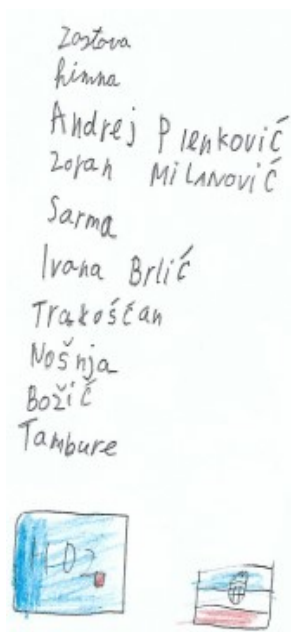 Zastava
himna
Andrej Plenković
Zoran MiLANOVIĆ
Sarma
Ivana Brlić
Trakošćan
Nošnja
Božić
Tambure
HDZ